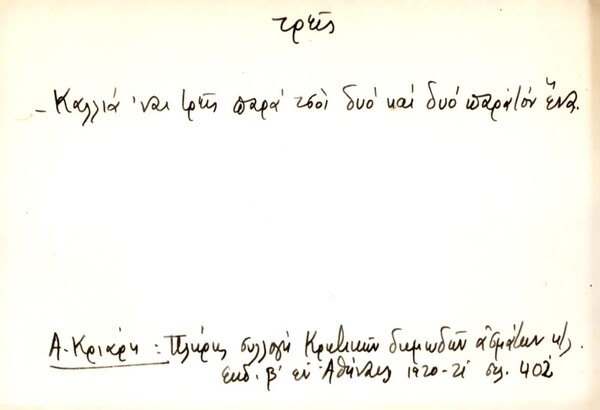 τρεῖς
- Καλλιά 'ναι τρεῖς παρά τσοί δυό καί δυό παρά τόν ἕνα.
Α. Κριάρη : Πλήρης συλλογή Κρητικῶν δημωδῶν ᾀσμάτων κ/λ.
Εκδ. β' εν Ἀθήναις 1920-21 σελ. 402